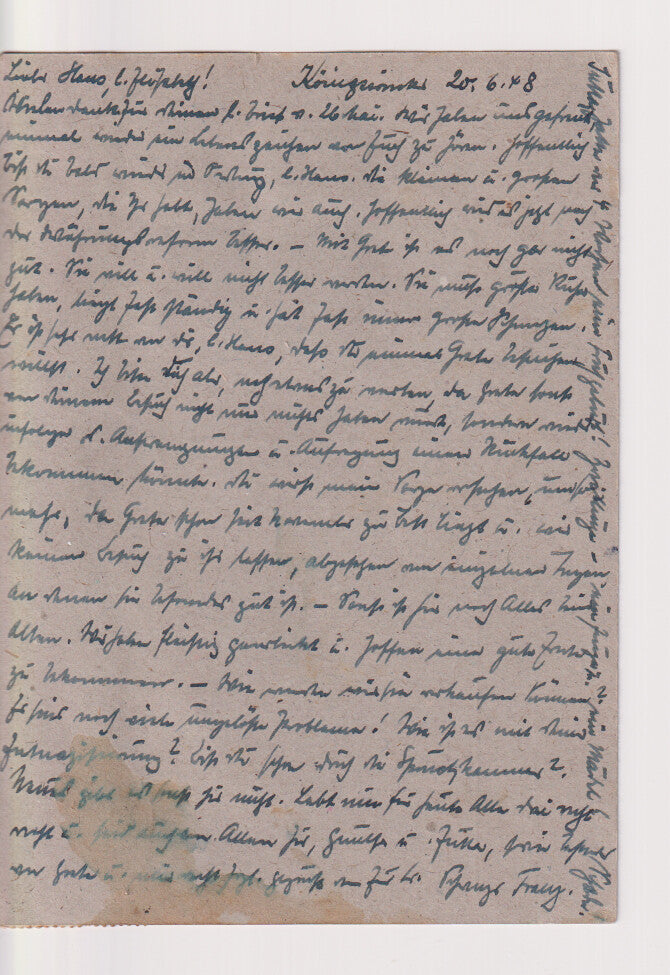 Lieber Hans, l. Elisabeth! Königswinter 20.6.48
Vielen Dank für deinen l. Brief v. 26 Mai. Wir haben uns gefreut,
einmal wieder ein Lebenszeichen von Euch zu hören. Hoffentlich
bist du bald wieder in Ordnung, l. Hans. Die kleinen u. großen
Sorgen, die Ihr habt, haben wir auch. Hoffentlich wird es jetzt nach
der Währungsreform besser. – Mit Grete ist es noch gar nicht
gut. Sie will u. will nicht besser werden. Sie muß große Ruhe
haben, liegt fast ständig u. hat fast immer große Schmerzen.
Es ist sehr nett von dir, l. Hans, daß du einmal Grete besuchen
willst. Ich bitte dich aber, noch etwas zu warten, da Grete sonst
von deinem Besuch nicht nur nichts haben wird, sondern
infolge d. Anstrengungen u. Aufregung einen Rückfall
bekommen könnte. Du wirst meine Sorge verstehen, umso
mehr, da Grete schon seit November zu Bett liegt u. wir
keinen Besuch zu ihr lassen, abgesehen von einzelnen
an denen sie besonders gut ist. – Sonst ist hier noch Alles beim
Alten. Wir haben fleißig gearbeitet u. hoffen eine gute Ernte
zu bekommen. – Wie werden wir sie verkaufen können
Es sind noch viele ungelöste Probleme! Wie ist es mit deiner
Entnazifizierung? Bist du schon durch die Spruchkammer?
Neues gibt es sonst hier nicht. Lebt nun für heute Alle drei recht
recht u. von Allen hier, u. Jutta,
von Grete u. recht hzl. gegrüßt von Franz.
Jutta hatte vor 4 Wochen eine Frühgeburt! Zwillinge – ein Junge u. ein Mädel!